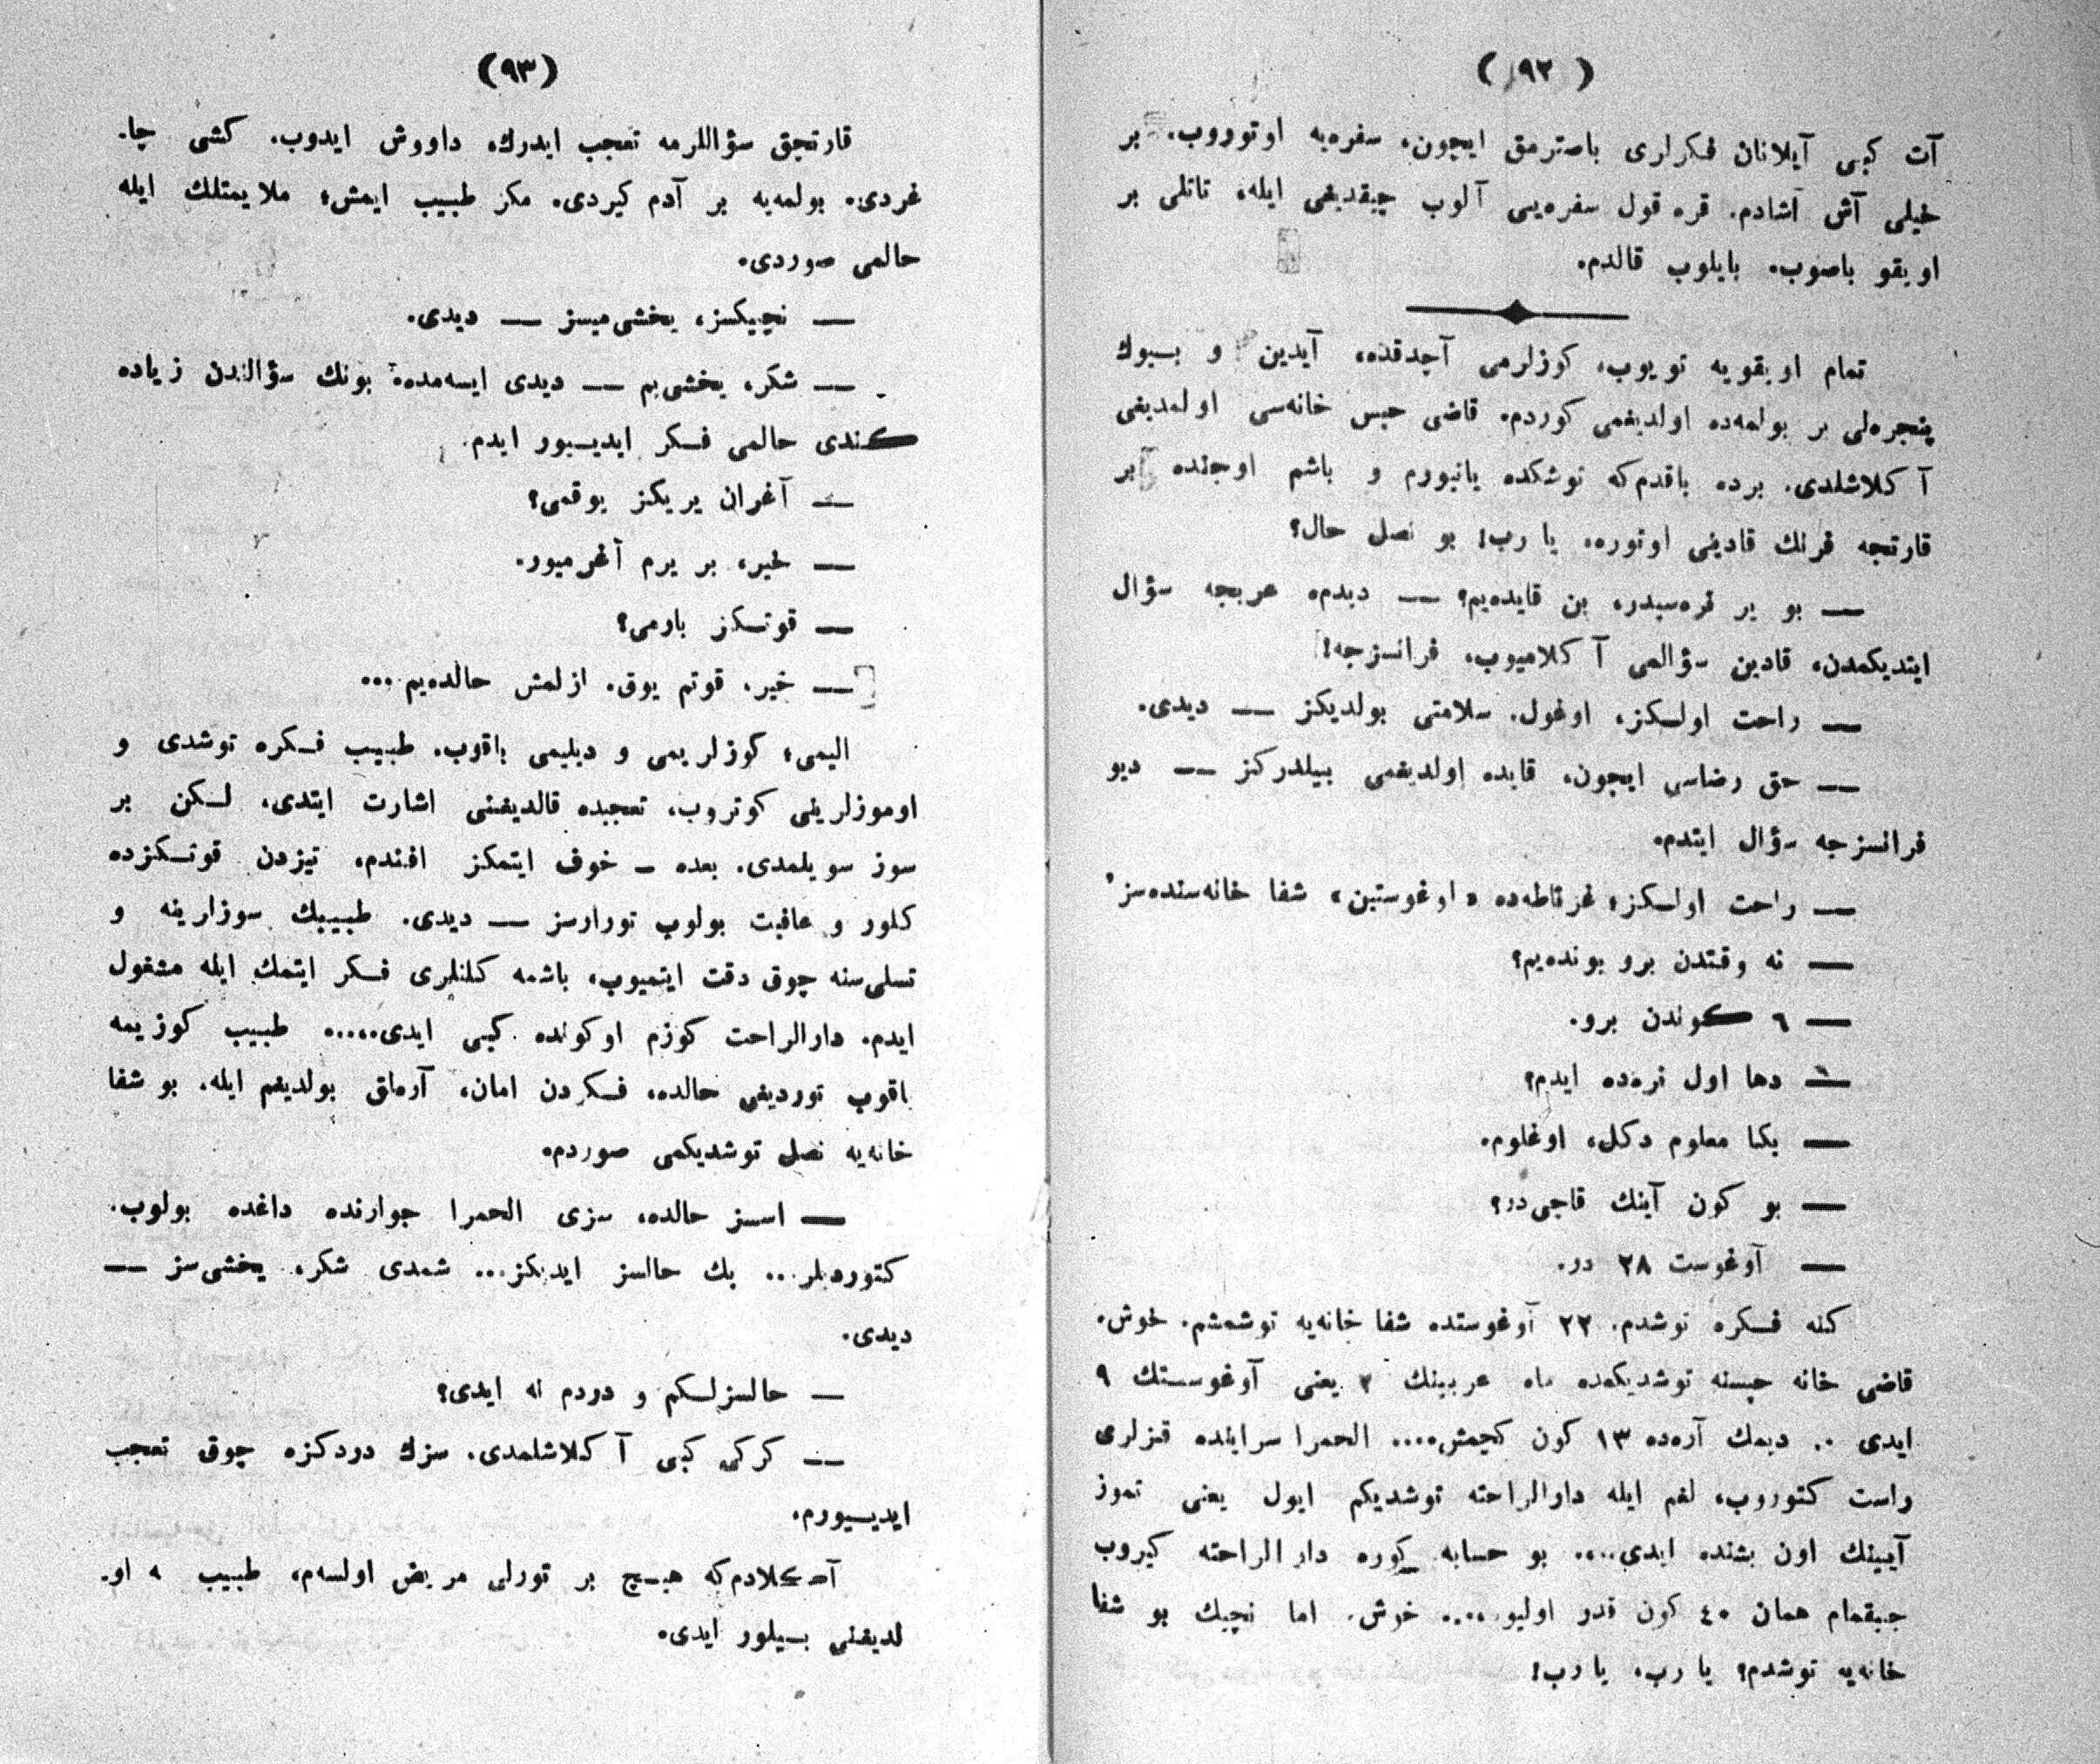 (٩٢)
آت كبی آیلانان فكرلری باصترمق ایچون، سفره‌یه اوتوروب. بر
خیلی آش آشادم. قره قول سفره‌یی آلوب چیقدیغی ایله، تاتلی بر
اویقو باصوب. بایلوب قالدم.
تمام اویقویه تویوب، كوزلرمی آچدقده، آیدین و بیوك
پنجره‌لی بر بولمه‌ده اولدیغمی كوردم. قاضی حبس خانه‌سی اولمدیغی
آ كلاشلدی. برده باقدم‌كه توشكده یاتیورم و باشم اوجنده بر
قارتجه فرنك قادینی اوتوره. یا رب! بو نصل حال؟
— بو یر نره‌سیدر، بن قایده‌یم؟ — دیدم. عربجه سؤال
ایتدیكمدن، قادین سؤالمی آ كلامیوب، فرانسزجه!
— راحت اولسكز، اوغول. سلامتی بولدیكز — دیدی.
— حق رضاسی ایچون، قایده اولدیغمی بیلدركز — دیو
فرانسزجه سؤال ایتدم.
— راحت اولسكز؛ غرناطه‌ده «اوغوستین» شفا خانه‌سنده‌سز.
— نه وقتدن برو بونده‌یم؟
— ٦ كوندن برو.
— دها اول نره‌ده ایدم؟
— بكا معلوم دكل، اوغلوم.
— بو كون آینك قاچی‌در؟
— آوغوست ٢٨ در.
كنه فكره توشدم. ٢٢ آوغوستده شفا خانه‌یه توشمشم. خوش.
قاضی خانه حبسنه توشدیكمده ماه عربینك ٢ یعنی آوغوستك ٩
ایدی .. دیمك آره‌ده ١٣ كون كچمش.... الحمرا سراینده قزلری
راست كتوروب، لغم ایله دارالراحته توشدیكم ایول یعنی تموز
آیینك اون بشنده ایدی.... بو حسابه كوره دار الراحته كیروب
چیقمام همان ٤٠ كون قدر اولیور.... خوش. اما نچیك بو شفا
خانه‌یه توشدم؟ یا رب، یا رب!
(٩٣)
قارتجق سؤاللرمه تعجب ایدرك، داووش ایدوب. كشی چا.
غردی. بولمه‌یه بر آدم كیردی. مكر طبیب ایمش؛ ملایمتلك ایله
حالمی صوردی.
— نچیكسز، یخشی‌میسز — دیدی.
— شكر، یخشی‌یم — دیدی ایسه‌مده، بونك سؤالندن زیاده
كندی حالمی فكر ایدییور ایدم.
— آغران یریكز یوقمی؟
— خیر، بر یرم آغرمیور.
— قوتسكز بارمی؟
— خیر. قوتم یوق. ازلمش حالده‌یم...
الیمی؛ كوزلریمی و دیلیمی باقوب. طبیب فكره توشدی و
اوموزلرینی كوتروب، تعجبده قالدیغنی اشارت ایتدی. لكن بر
سوز سویلمدی. بعده — خوف ایتمكز افندم، تیزدن قوتسكزده
كلور و عافیت بولوب تورارسز — دیدی. طبیبك سوزلرینه و
تسلی‌سنه چوق دقت ایتمیوب، باشمه كلنلری فكر ایتمك ایله مشغول
ایدم. دارالراحت كوزم اوكونده كبی ایدی..... طبیب كوزیمه
باقوب توردیغی حالده، فكردن امان، آره‌لق بولدیغم ایله. بو شفا
خانه‌یه نصل توشدیكمی صوردم.
— اسسز حالده، سزی الحمرا جوارنده داغده بولوب.
كتوردیلر... پك حالسز ایدیكز... شمدی شكر، یخشی‌سز —
دیدی.
— حالسزلكم و دردم نه ایدی؟
— كركی كبی آ كلاشلمدی. سزك دردكزه چوق تعجب
ایدییورم.
آ كلادم‌كه هیچ بر تورلی مریض اولسه‌م، طبیب نه او.
لدیغنی بیلور ایدی.